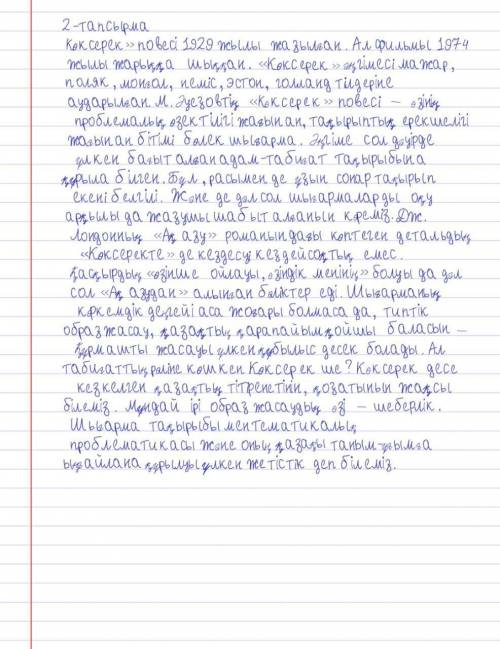 2-тапсырма
Көксерек» повесі 1929 жылы жазылған. Ал фильмы 1974
жылы жарыққа шыққан. «Көксерек» әңгімесі мажар,
поляк, монғол, неміс, эстон, голланд тілдеріне
аударылған. М. Әуезовтің «Көксерек» повесі – өзінің
проблемалық өзектілігі жағынан, тақырыптық ерекшелігі
жағынан бітімі бөлек шығарма. Әңгіме сол дәуірде
үлкен бағыт алған адам-табиғат тақырыбына
құрыла білген. Бұл, расымен де ұзын сонар тақырып
екені белгілі. Және де дәл сол шығармаларды оқу
арқылы да жазушы шабыт алғанын көреміз. Дж.
Лондонның «Ақ азу» романындағы көптеген детальдың
«Көксеректе» де кездесуі кездейсоқтық емес.
Қасқырдың «өзінше ойлауы, өзіндік менінің» болуы да дәл
сол «Ақ азудан» алынған бөліктер еді. Шығарманың
көркемдік деңгейі аса жоғары болмаса да, типтік
образ жасау, қазақтың қарапайым қойшы баласын –
Құрмашты жасауы үлкен құбылыс десек болады. Ал
табиғаттың рөліне көшкен Көксерек ше? Көксерек десе
кезкелген қазақтың тітіренетіні, қозатынын жақсы
білеміз. Мұндай ірі образ жасаудың өзі – шеберлік.
Шығарма тақырыбы мен тематикалық
проблематикасы және оның қазақы таным-ұғымға
ыңғайлана құрылуы үлкен жетістік деп білеміз.